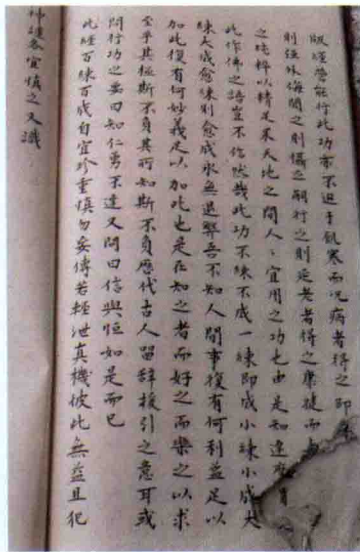 販經營能行此功亦不迫于飢寒而況病者得之即
則強外侮聞之則懾之嗣行之則延老者得之康健而
之純粹以精是果天地之間人人宜用之功也由是知達
此作佛之語豈不信然哉此功不練不成一練即成小練小成大
練大成愈練則愈成永無退弊吾不知人間事復有何利益足以
加此復有何妙義足以加此也是在知之者而好之而樂之以求
至乎其極斯不負其所知斯不負歷代古人留辭援引之意耳或
問行功之要曰知仁勇不達又問曰信與恒如是而已
此經百練百成自宜珍重慎勿妄傳若輕泄真機彼此無益且犯
神譴務宜慎之又識